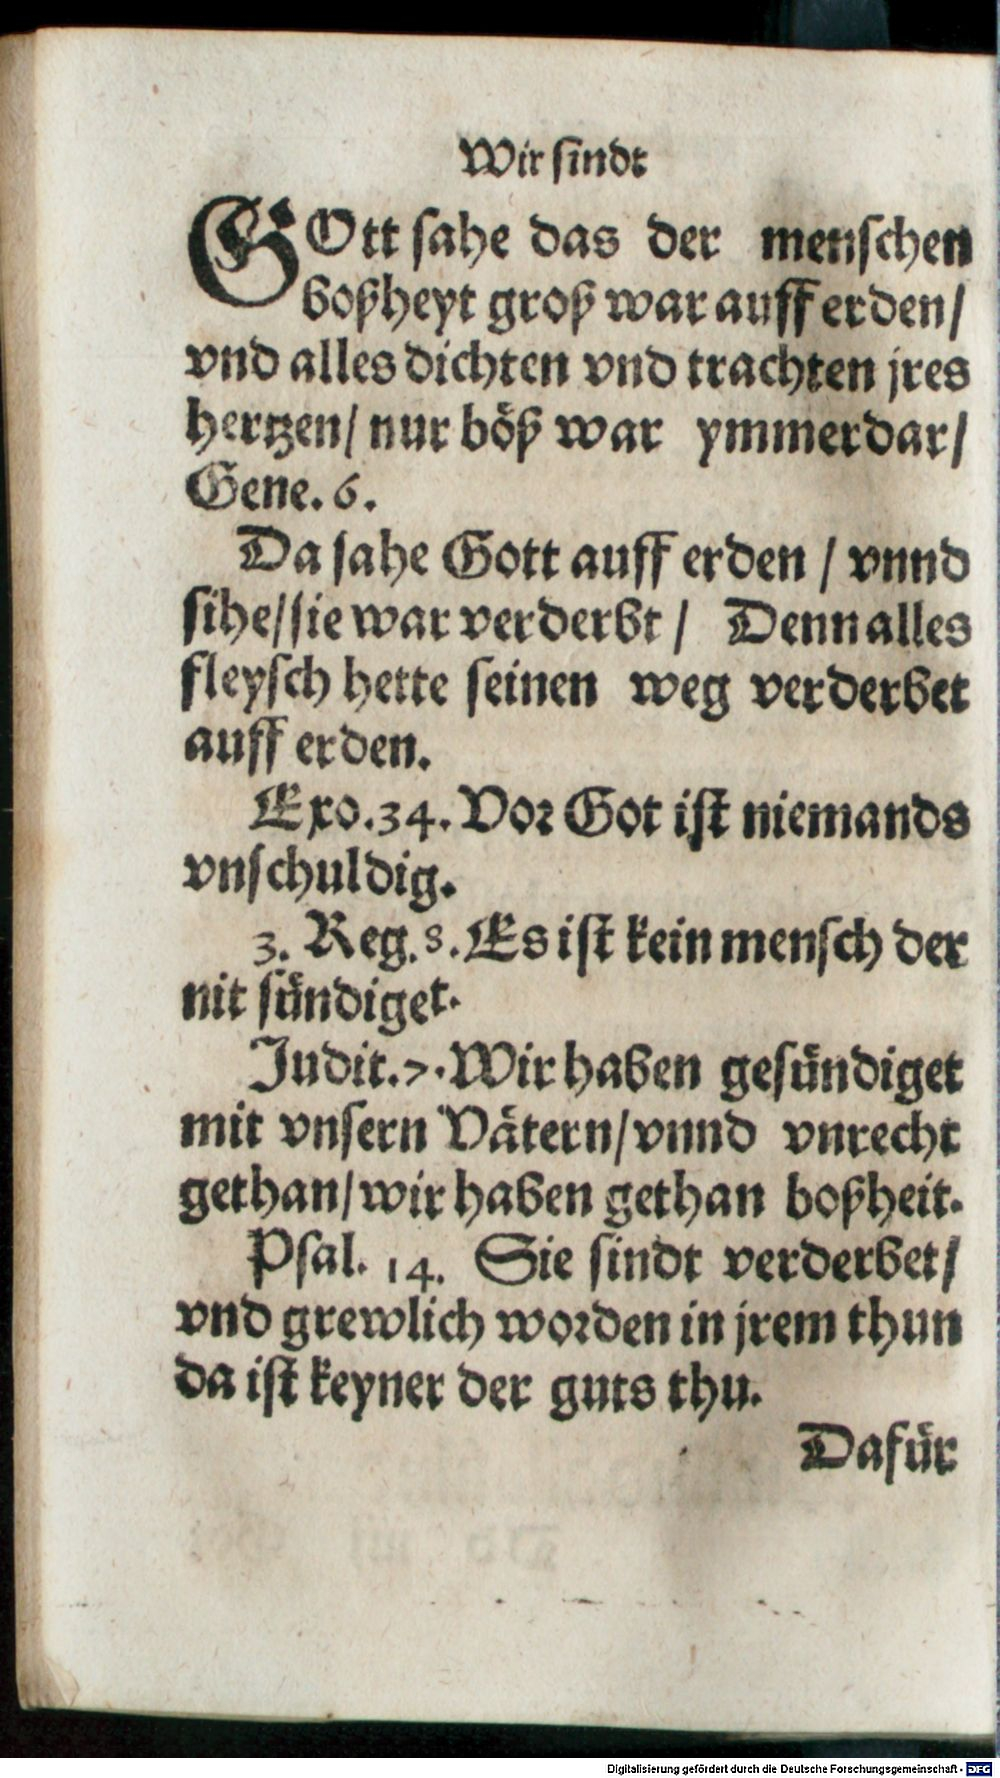 Wir sindt
GOtt sahe das der menschen
boßheyt groß war auff erden/
vnd alles dichten vnd trachten jres
hertzen/ nur böß war ymmerdar/
Gene. 6.
Da sahe Gott auff erden / vnnd
sihe/sie war verderbt / Denn alles
fleysch hette seinen weg verderbet
auff erden.
Exo.34. Vor Got ist niemands
vnschuldig.
3. Reg. 8. Es ist kein mensch der
nit sündiget.
Judit.7. Wir haben gesündiget
mit vnsern Vätern/vnnd vnrecht
gethan/wir haben gethan boßheit.
Psal. 14. Sie sindt verderbet/
vnd grewlich worden in jrem thun
da ist keyner der guts thu.
Dafür
Digitalisierung gefördert durch die Deutsche Forschungsgemeinschaft - DFG